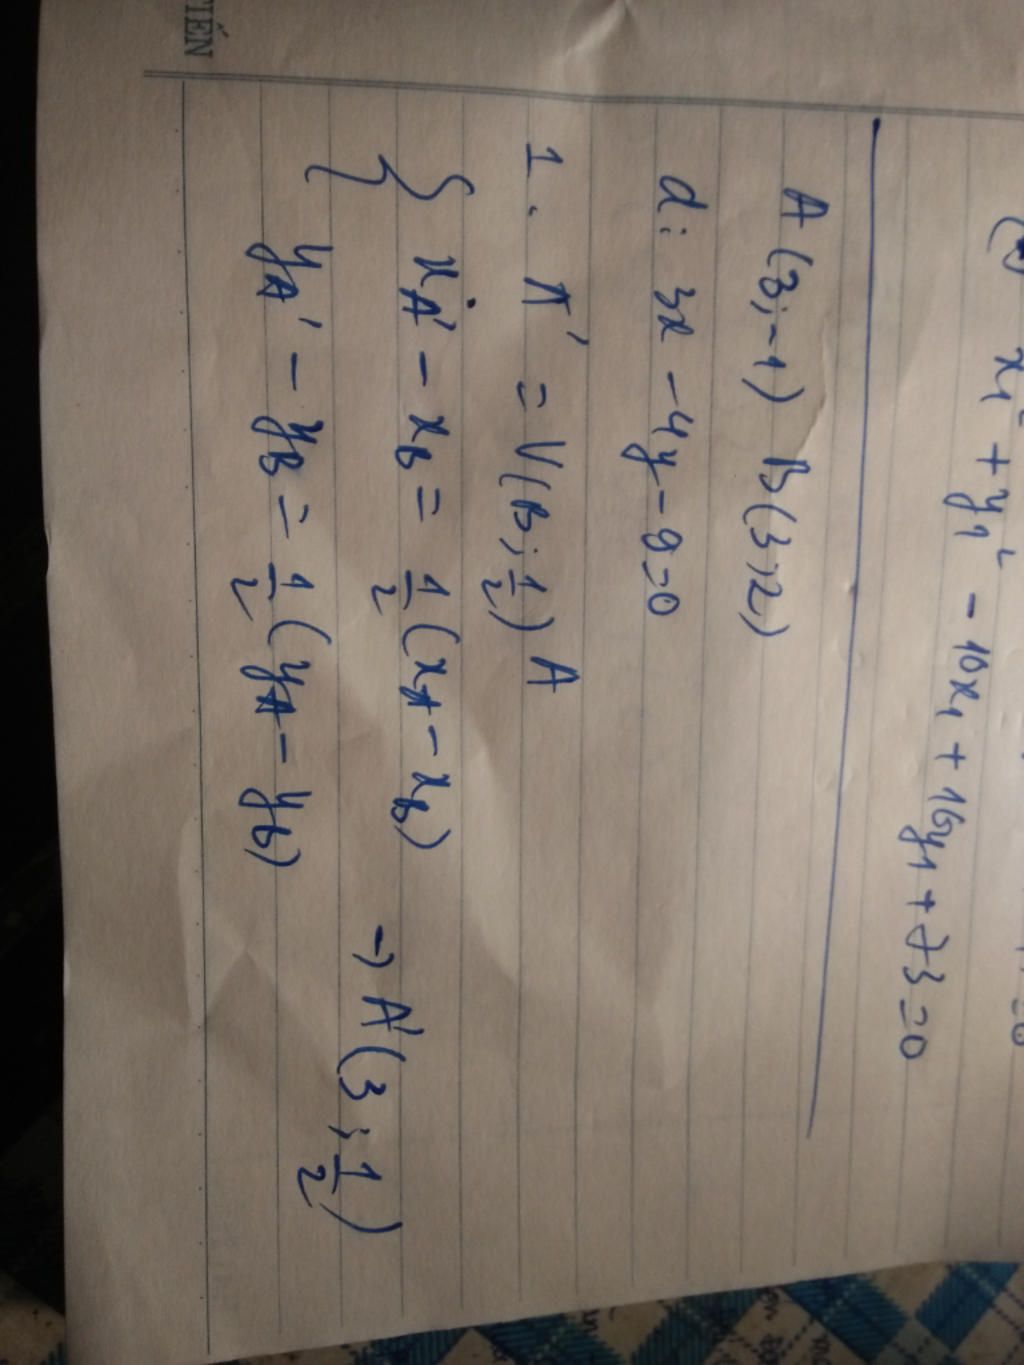 x₁² + y₁² - 10x₁ + 16y₁ + 73 = 0
A (3; -1) B (3; 2)
d: 3x - 4y - 9 = 0
1. A' = V(B; 1/2) A
{ x_A' - x_B = 1/2 (x_A - x_B)
{ y_A' - y_B = 1/2 (y_A - y_B)
→ A' (3; 1/2)
TIẾN